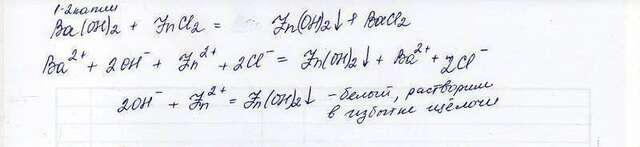 1-2 капли
Ba(OH)2 + ZnCl2 = Zn(OH)2↓ + BaCl2
Ba²⁺ + 2OH⁻ + Zn²⁺ + 2Cl⁻ = Zn(OH)2↓ + Ba²⁺ + 2Cl⁻
2OH⁻ + Zn²⁺ = Zn(OH)2↓ - белый, растворим
в избытке щёлочи